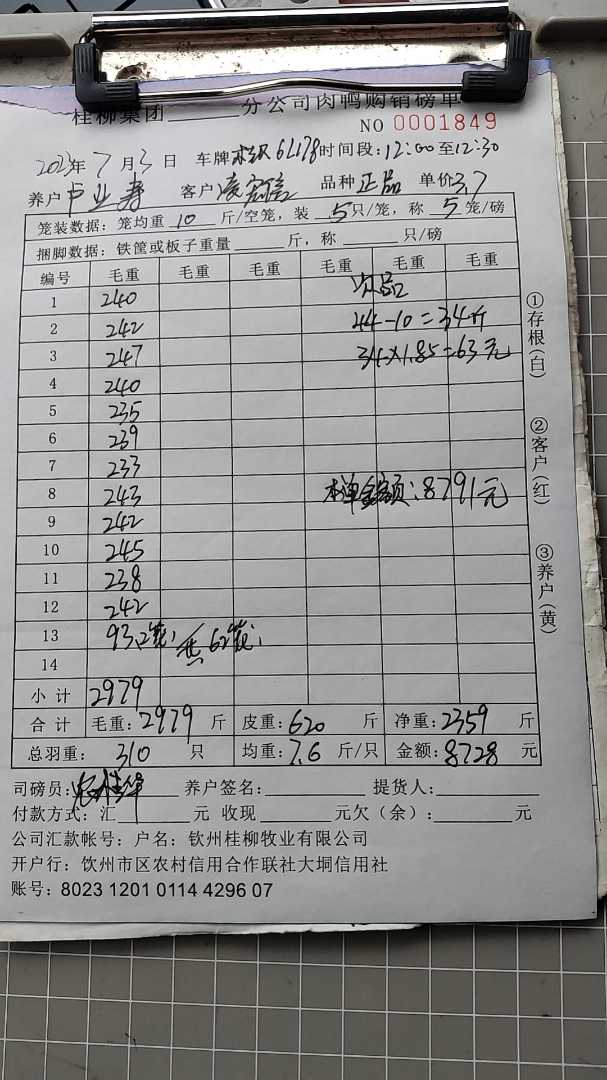 桂柳集团______分公司肉鸭购销磅单
NO 0001849
2023年7月3日 车牌 62178 时间段:12:00至12:30
养户 卢业寿 客户 凌 品种 正品 单价3.7
笼装数据:笼均重 10 斤/空笼,装 5只/笼,称 5 笼/磅
捆脚数据:铁筐或板子重量______斤,称______只/磅
编号 毛重 毛重 毛重 毛重 毛重 毛重
1 240 次品
2 242 44-10=34斤
3 247 34×1.85=63元
4 240
5 235
6 239
7 233
8 243 本单金额:8791元
9 242
10 245
11 238
12 242
13 93,2笼, 共62笼,
14
小计 2979
合计 毛重:2979 斤 皮重:620 斤 净重:2359 斤
总羽重: 310 只 均重:7.6 斤/只 金额:8728 元
司磅员: 养户签名:________ 提货人:________
付款方式:汇______元 收现______元欠(余):______元
公司汇款帐号:户名:钦州桂柳牧业有限公司
开户行:饮州市区农村信用合作联社大垌信用社
账号:8023 1201 0114 4296 07
①存根(白)
②客户(红)
③养户(黄)